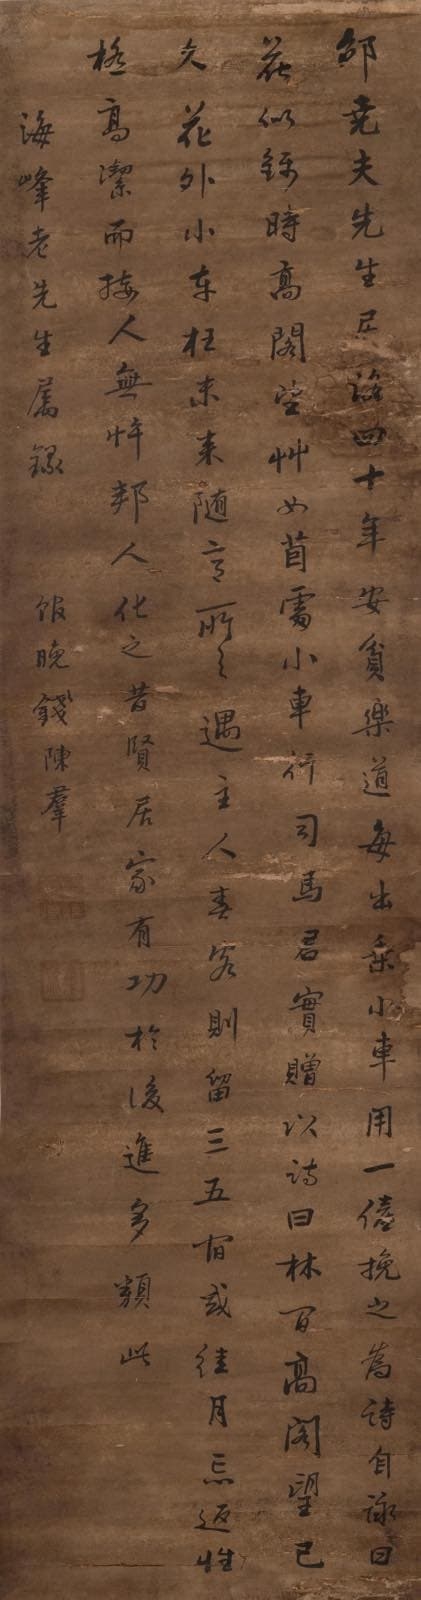 邵堯夫先生居洛四十年安貧樂道每出乘小車用一僮挽之為詩自詠曰
花似錦時高閣望艸如茵處小車行司馬君實贈以詩曰林间高阁望已
久花外小车狂未来随意所之遇主人喜客則留三五宿或经月忘返性
極高潔而接人無忤鄉人化之昔賢居家有功於後進多類此
海峰老先生屬錄
飯晚錢陳羣